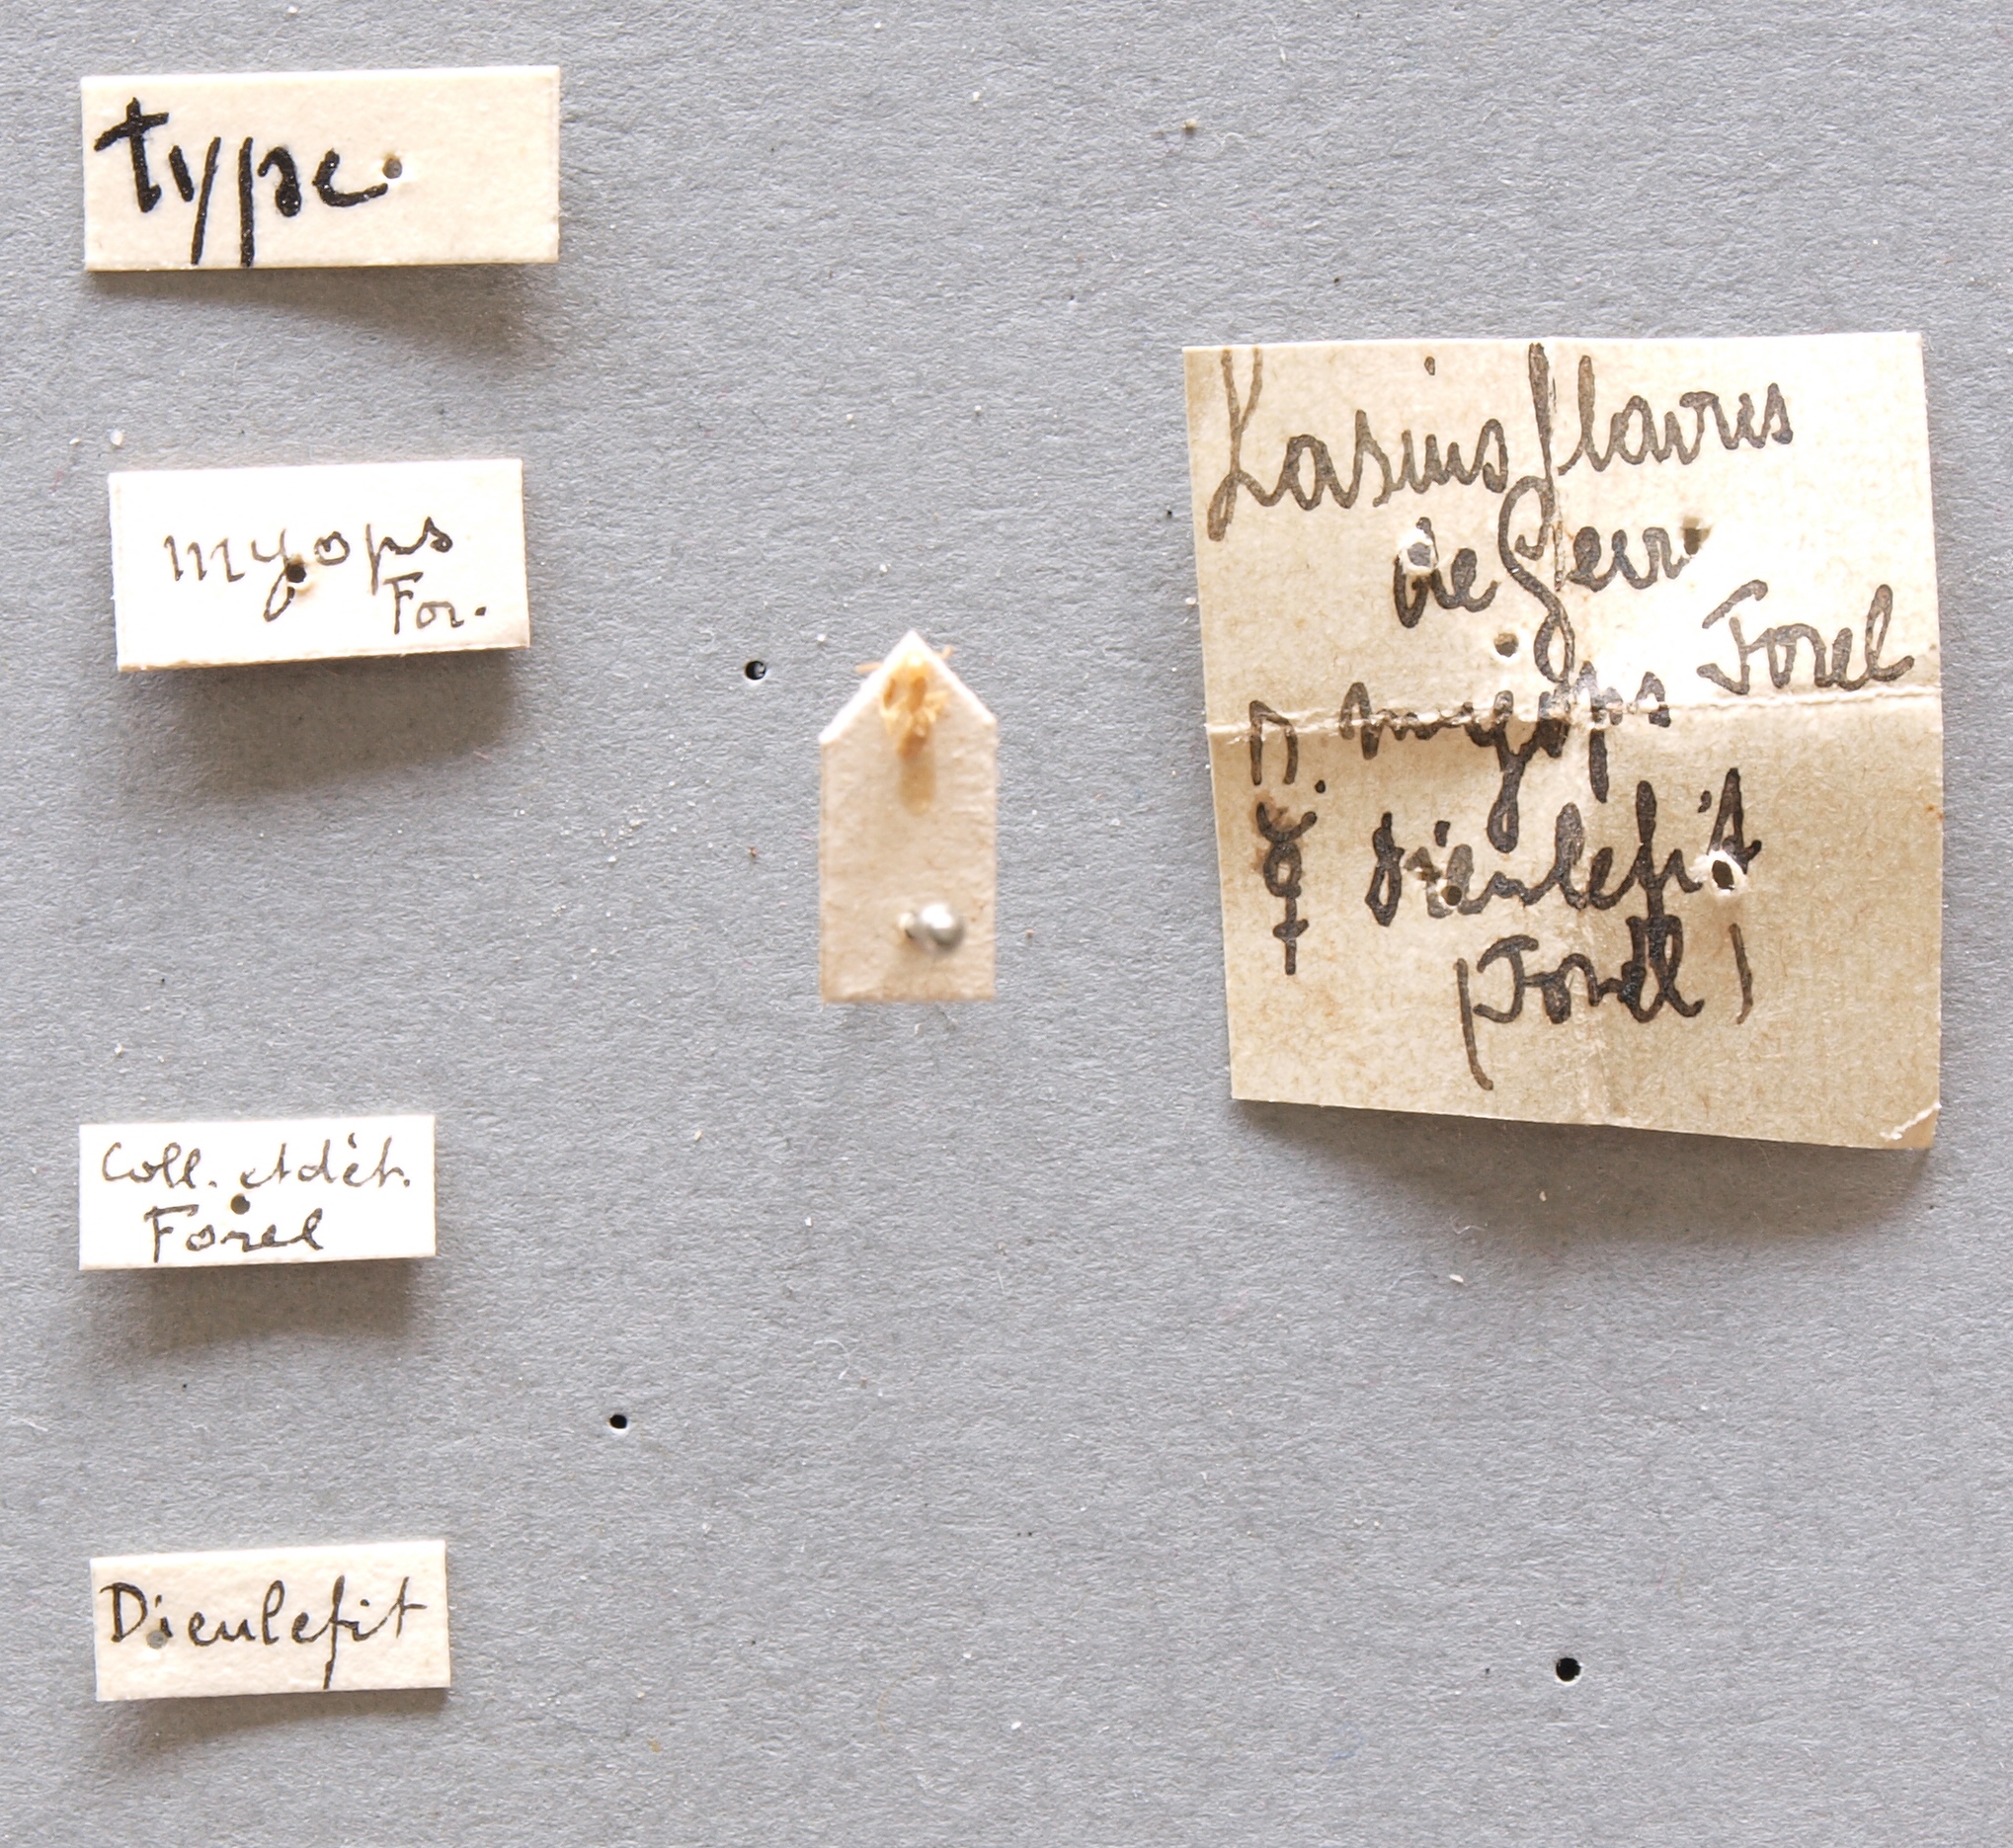 type
myops
For.
Coll. et dét.
Forel
Dieulefit
Lasius flavus
de Geer
r. myops Forel
☿ Dieulefit
(Forel)